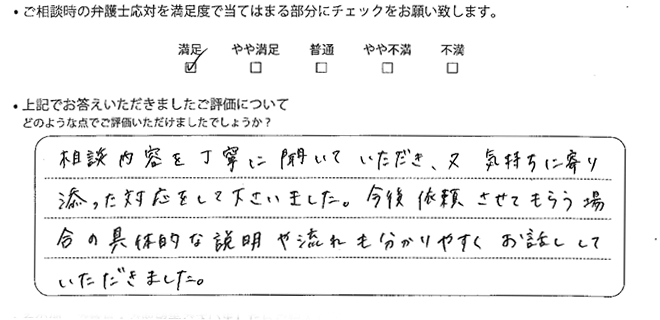 ・ご相談時の弁護士応対を満足度で当てはまる部分にチェックをお願い致します。
満足 やや満足 普通 やや不満 不満
☑ □ □ □ □
・上記でお答えいただきましたご評価について
どのような点でご評価いただけましたでしょうか?
相談内容を丁寧に聞いていただき、又 気持ちに寄り
添った対応をして下さいました。今後 依頼 させてもらう場
合の具体的な説明や流れも分かりやすく お話しして
いただきました。